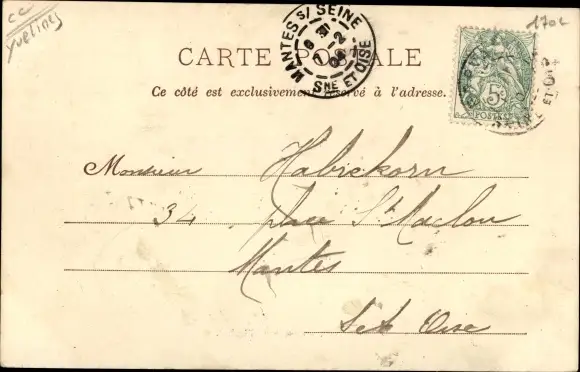 cc
Yvelines
1702
MANTES S/ SEINE
SNE ET OISE
CARTE POSTALE
Ce côté est exclusivement réservé à l'adresse.
5c
POSTES
Monsieur Habickorn
34 place St Maclou
Mantes
S et Oise